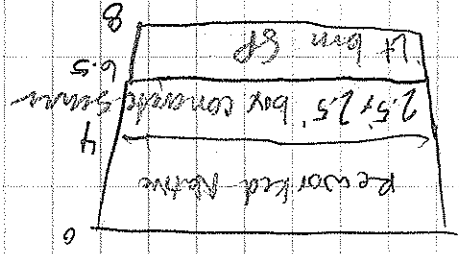 0
Reworked Native
4
2.5' x 2.5' box concrete sewer
6.5
Lt brn SP
8